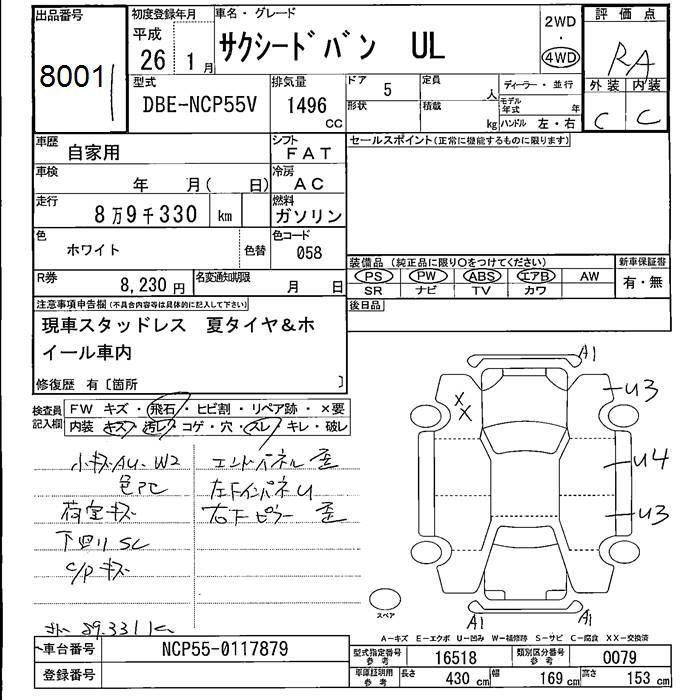 出品番号
8001
初度登録年月
平成
26 1月
車名・グレード
サクシードバン UL
2WD
・
4WD
評価点
RA
外装 内装
C C
型式
DBE-NCP55V
排気量
1496
CC
ドア
5
定員
人
形状
積載
kg
ディーラー・並行
モデル年式
年
ハンドル 左・右
車歴
自家用
シフト
FAT
車検
年 月( 日)
冷房
AC
走行
8万9千330 km
燃料
ガソリン
色
ホワイト
色替
色コード
058
R券
8,230円
名変通知期限
月 日
セールスポイント(正常に機能するものに限ります)
装備品(純正品に限り○をつけてください)
PS PW ABS エアB AW
SR ナビ TV カワ
新車保証書
有・無
後日品
注意事項申告欄(不具合内容等は具体的に記入して下さい)
現車スタッドレス 夏タイヤ&ホ
イール車内
修復歴 有〔箇所 〕
検査員
記入欄
FW キズ・飛石・ヒビ割・リペア跡・×要
内装 キズ・汚レ・コゲ・穴・スレ・キレ・破レ
小キズAU、W2 エンドパネル歪
左下インパネU
荷室キズ 右下ピラー歪
下回りSC
C/Pキズ
89.331km
A1
U3
X
X
U4
U3
A1
A1
スペア
A−キズ E−エクボ U−凹み W−補修跡 S−サビ C−腐食 XX−交換済
車台番号
NCP55-0117879
登録番号
型式指定番号
参考
16518
類別区分番号
参考
0079
車庫証明用
参考
長さ
430 cm
幅
169 cm
高さ
153 cm